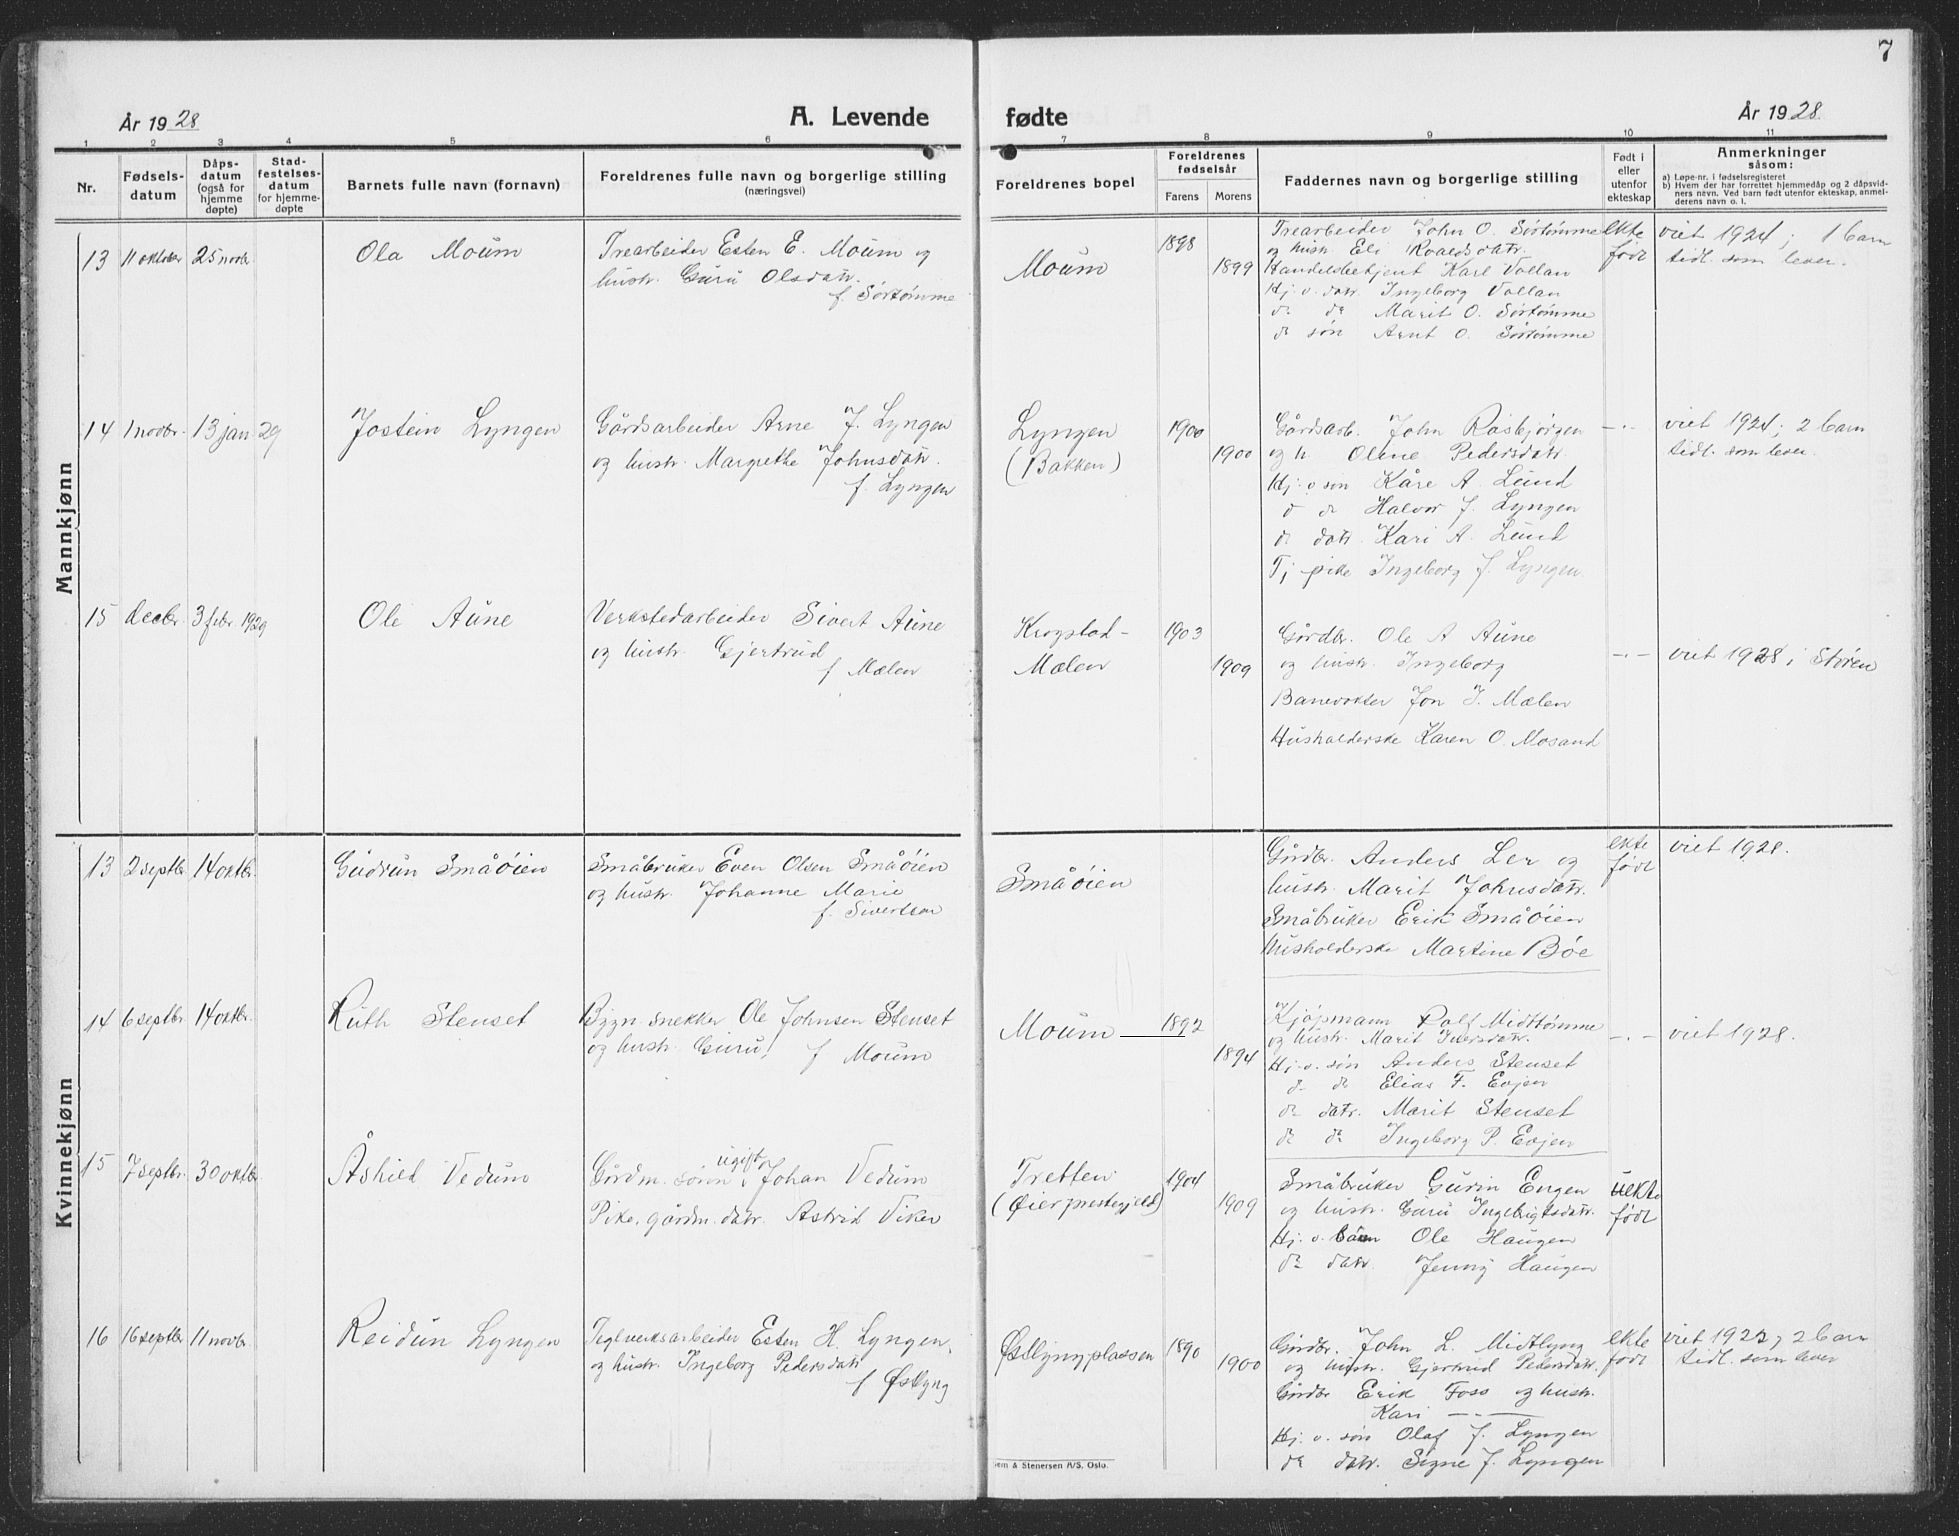 7
År 1928
A. Levende
fødte
År 1928.
1 2 3 4 5 6 7 8 9 10 11
Nr.
Fødsels-
datum
Dåps-
datum
(også for
hjemme
døpte)
Stad-
festelses-
datum
for hjemme-
døpte
Barnets fulle navn (fornavn)
Foreldrenes fulle navn og borgerlige stilling
(næringsvei)
Foreldrenes bopel
Foreldrenes
fødselsår
Farens
Morens
Faddernes navn og borgerlige stilling
Født i
eller
utenfor
ekteskap
Anmerkninger
såsom:
a) Løpe-nr. i fødselsregisteret
b) Hvem der har forrettet hjemmedåp og 2 dåpsvid-
ners navn. Ved barn født utenfor ekteskap, anmel-
derens navn o. l.
Mannkjønn
13 11 oktober 25 novbr
Ola Moum
Trearbeider Esten E. Moum og
hustr. Guru Olsdatr.
f. Sørtømme
Moum
1898
1899
Trearbeider John O. Sørtømme
og hustr. Eli Roaldsdatr.
Handelsbetjent Karl Vollan
Hj. v. datr. Ingeborg Vollan
do do Marit O. Sørtømme
do søn Arnt O. Sørtømme
ekte
født
viet 1924; 1 barn
tidl. som lever.
14 1 novbr. 13 jan 29
Jostein Lyngen
Gårdsarbeider Arne J. Lyngen
og hustr. Margrethe Johnsdatr.
f. Lyngen
Lyngen
(Bakken)
1900
1900
Gårdsarb. John Rosbjørgen
og h. Oline Pedersdatr.
Hj. v søn Kåre A. Lund
d do Halvor J. Lyngen
do datr. Kari A. Lund
Tj. pike Ingeborg J. Lyngen
-.-
viet 1924; 2 barn
tidl. som lever.
15 decbr. 3 febr. 1929
Ole Aune
Verkstedarbeider Sivert Aune
og hustr. Gjertrud
f Mælen
Krogstad-
Mælen
1903
1909
Gårdbr. Ole A Aune
og hustr. Ingeborg
Banevokter Jon J. Mælen
Husholderske Karen O. Mosand
-.-
viet 1928 i Støren
Kvinnekjønn
13 2 septbr 14 oktbr.
Gudrun Småøien
Småbruker Even Olsen Småøien
og hustr. Johanne Marie
f. Sivertsen
Småøien
Gårdbr. Anders Ler og
hustr. Marit Johnsdatr.
Småbruker Erik Småøien
husholderske Martine Bøe
ekte
født
viet 1928.
14 6 septbr. 14 oktbr.
Ruth Stenset
Bygn. snekker Ole Johnsen Stenset
og hustr. Guru f Moum
Moum
1892
1894
Kjøpmann Rolf Midttømme
og hustr. Marit Iversdatr.
Hj. v. søn Anders Stenset
do do Elias F. Evjen
do datr. Marit Stenset
do do Ingeborg P. Evjen
-.-
viet 1928.
15 7 septbr. 30 oktbr.
Åshild Vedum
Gårdm. sønn ugift Johan Vedum
Pike, gårdm. datr. Astrid Viker
Tretten
(Øier prestegjeld)
1904
1909
Småbruker Gurin Engen
og hustr. Guru Ingebrigtsdatr.
Hj. v. Ole Haugen
do datr. Jenny Haugen
uekte
født
16 16 septbr 11 novbr.
Reidun Lyngen
Teglverksarbeider Esten H. Lyngen,
og hustr. Ingeborg Pedersdatr
f Østlyng
Østlyngplassen
1890
1900
Gårdbr. John L. Midtlyng
og hustr. Gjertrud Pedersdatr.
Gårdbr Erik Foss og hustr.
Kari — — —
Hj. v. søn Olaf J. Lyngen
do datr. Signe J. Lyngen
ekte
født
viet 1922, 2 barn
tidl. som lever
em & Stenersen A/S, Oslo.